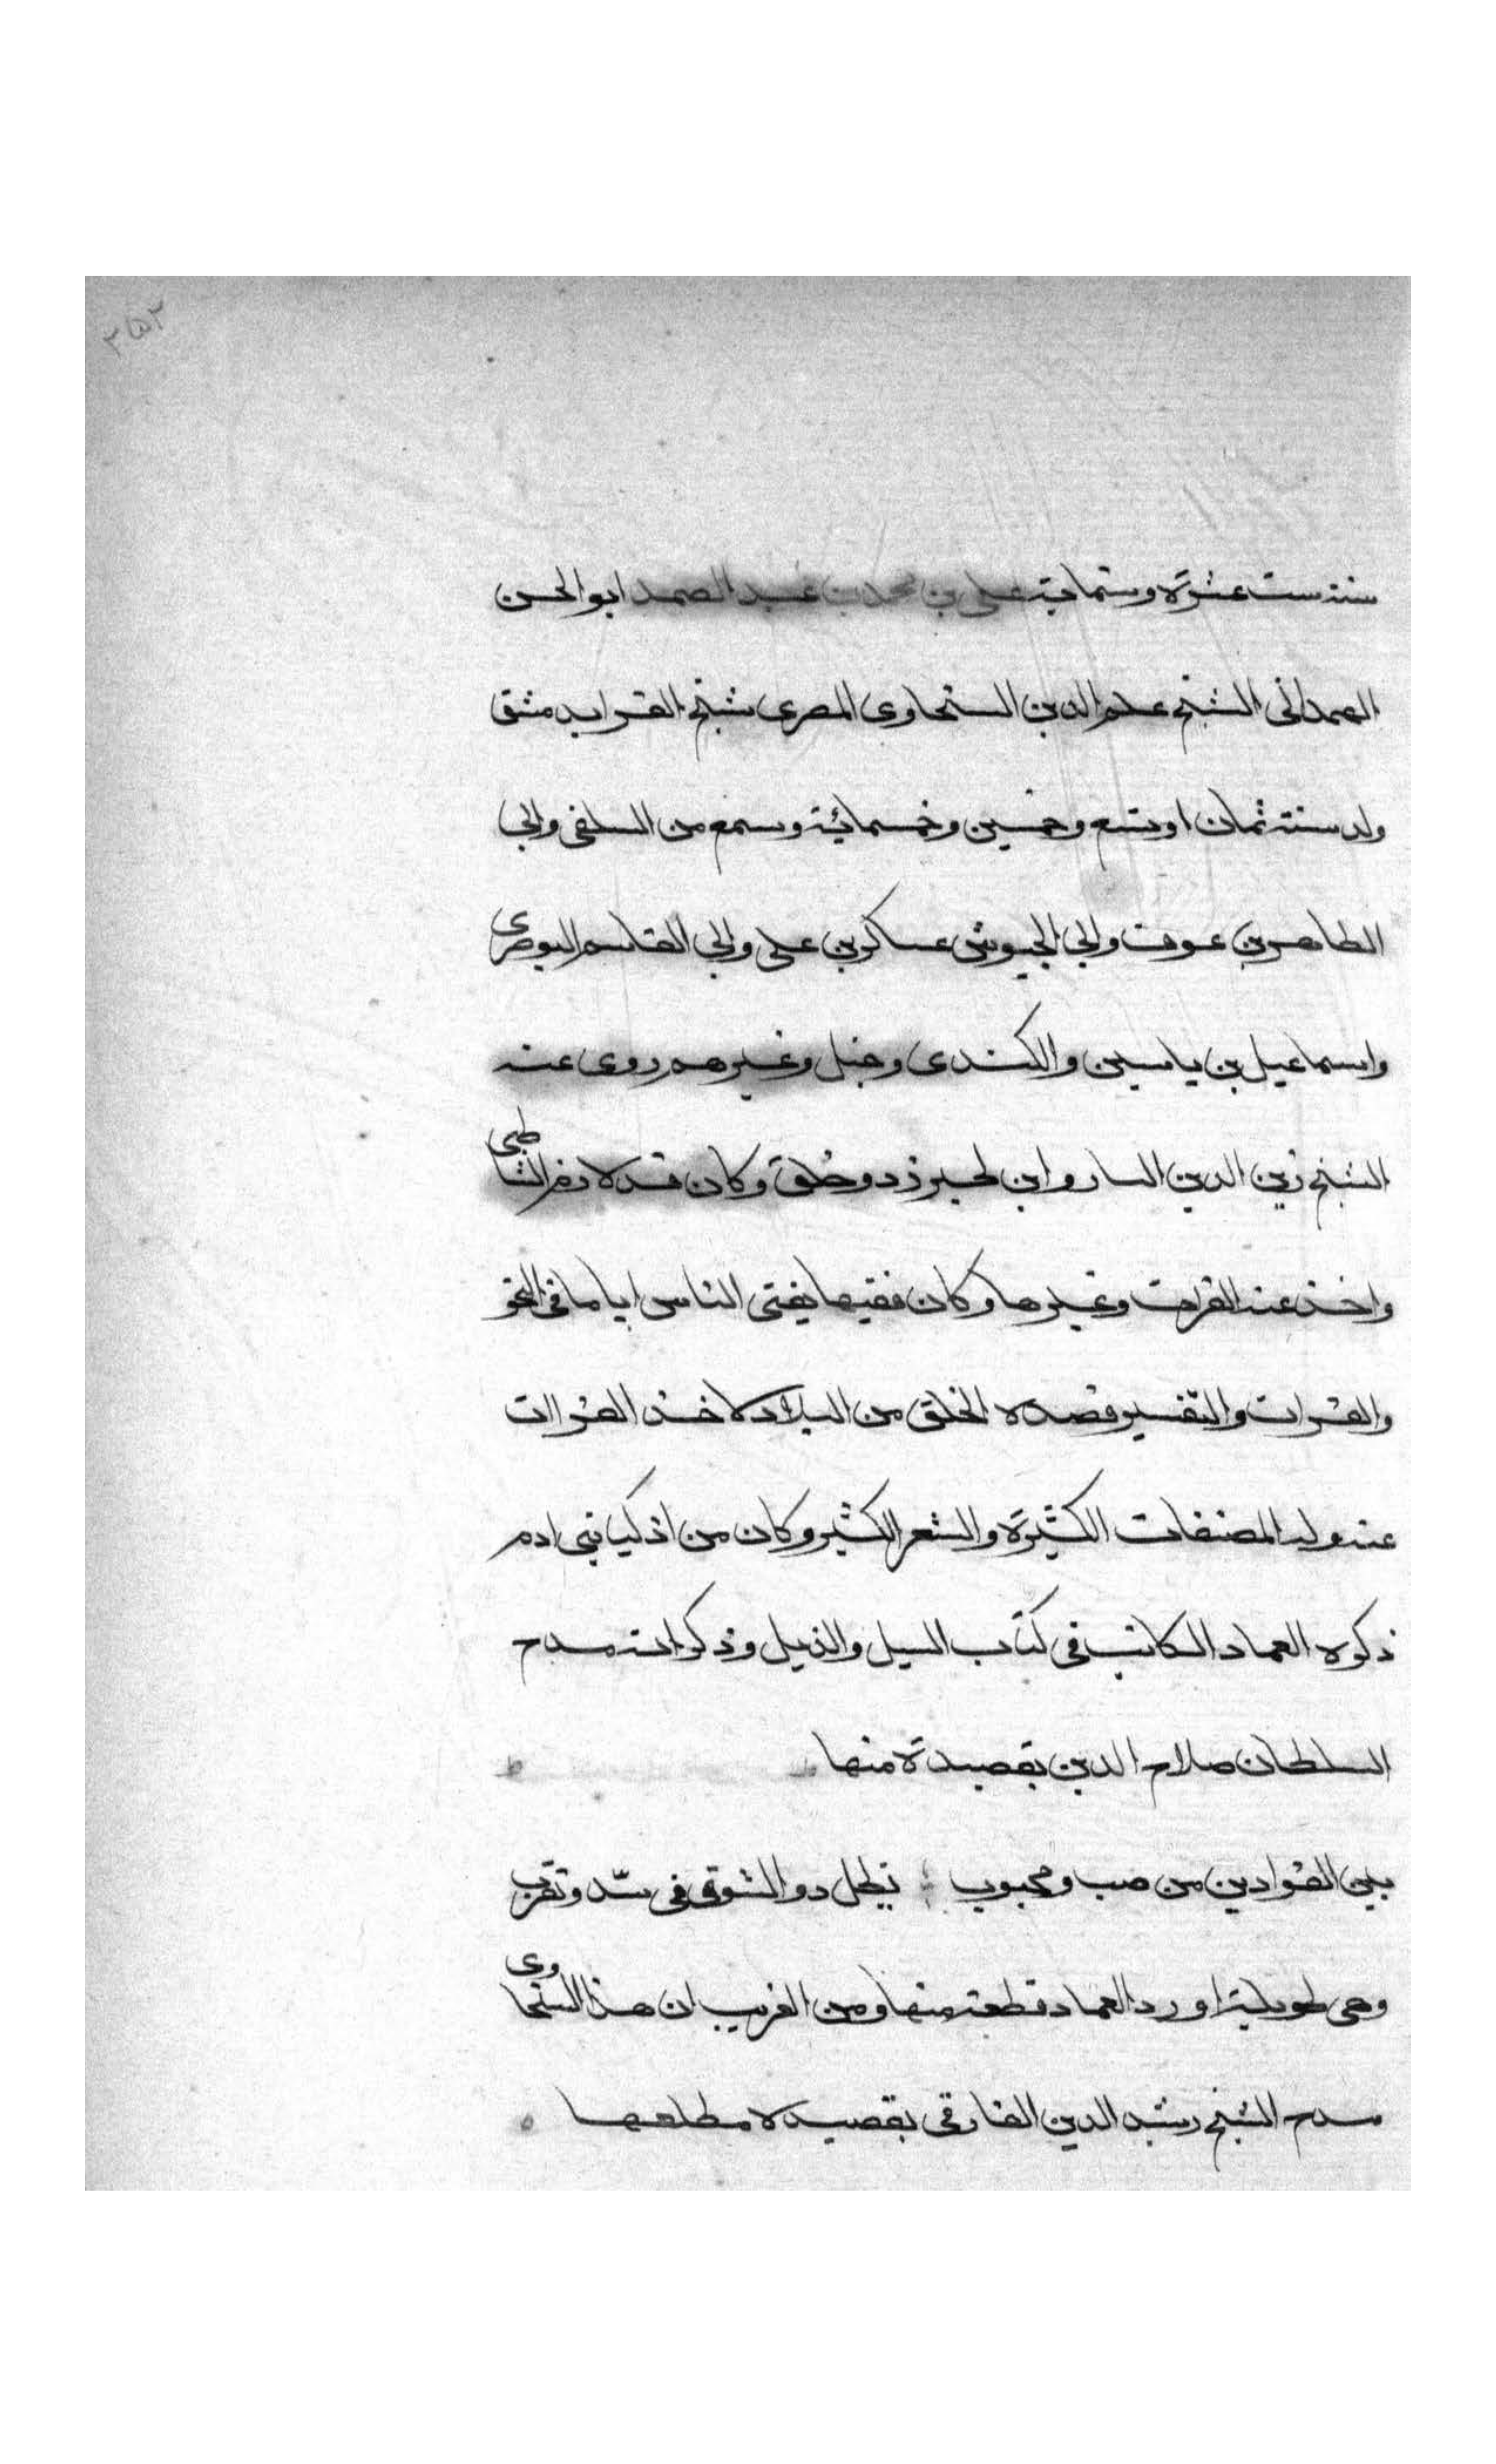 ٣٥٢
سنة ست عشرة وستماية علي بن محمد بن عبد الصمد ابو الحسن
الهمداني الشيخ علم الدين السخاوي المصري شيخ القرا بدمشق
ولد سنة ثمان او تسع وخمسين وخمسمائة وسمع من السلفي وابي
الطاهر بن عوف وابي الجيوش عساكر بن علي وابي القاسم البوصري
واسماعيل بن ياسين والكندي وحنبل وغيرهم روى عنه
الشيخ زين الدين وابن وخلق وكان قد لازم الشاطبي
واخذ عنه القراات وغيرها وكان فقيها يفتي الناس اياما في النحو
والقرات والتفسير قصده الخلق من البلاد لاخذ القراات
عنه وله المصنفات الكثيرة والشعر الكثير وكان من اذكيا بني ادم
ذكره العماد الكاتب في كتاب السيل والذيل وذكر انه مدح
السلطان صلاح الدين بقصيدة منها
بين الفوادين من صب ومحبوب يظل ذو الشوق في شد وتقريب
وهي طويلة اورد العماد قطعة منها ومن الغريب ان هذا السخاوي
مدح الشيخ رشيد الدين الفارقي بقصيدة مطلعها